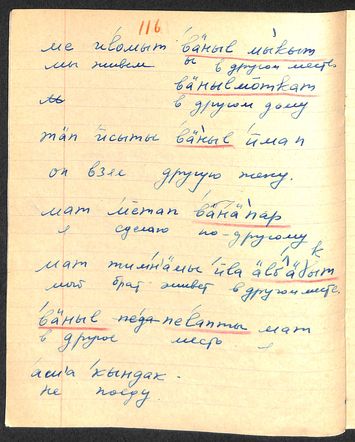 116
ме и́ломыт ва́ныв мы́кыт
мы живем в другом месте
ва́ныв мо́ткат
в другом дому
тап и́сыты ва́ныв и́мап
он взял другую жену.
мат ме́тап ва́на́ пар
я сделаю по-другому
мат тимн̄а́мы и́ла
мой брат живет в другом месте
ва́ныв пе́лапты мат
в другое место я
а́ша кындак.
не поеду.